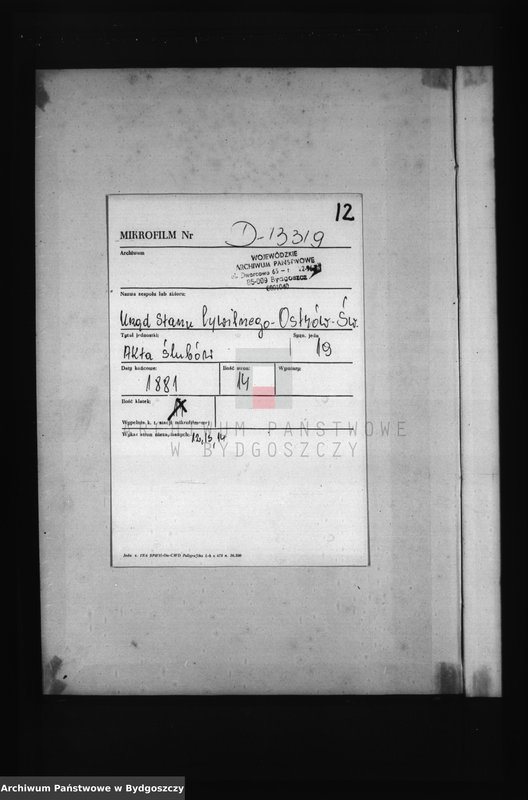 12
MIKROFILM Nr D-1339
Archiwum
WOJEWÓDZKIE
ARCHIWUM PAŃSTWOWE
ul. Dworcowa 65
85-009 Bydgoszcz
Nazwa zespołu lub zbioru:
Urząd Stanu Cywilnego-Ostrów-Św.
Tytuł jednostki: Sygn. jedn.
Akta ślubów 19
Daty końcowe: Ilość stron: Wymiary:
1881 14
Ilość klatek:
Wykaz stron niezapisanych: 12, 13, 14
ARCHIWUM PAŃSTWOWE
W BYDGOSZCZY
Archiwum Państwowe w Bydgoszczy